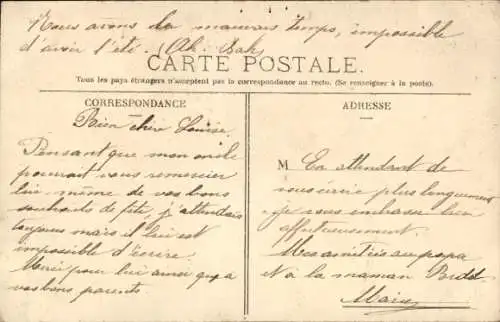 Nous avons du mauvais temps, impossible
d'avoir l'été. (Ah. Bah)
CARTE POSTALE.
Tous les pays étrangers n'acceptent pas la correspondance au recto. (Se renseigner à la poste).
CORRESPONDANCE
Bien chère Louise.
Pensant que mon oncle
pourrait vous remercier
lui-même de vos bons
souhaits de fête, j'attendais
toujours mais il lui est
impossible d'écrire.
Merci pour lui ainsi qu'à
vos bons parents.
ADRESSE
M En attendant de
vous écrire plus longuement
je vous embrasse bien
affectueusement.
Mes amitiés au papa
et à la maman